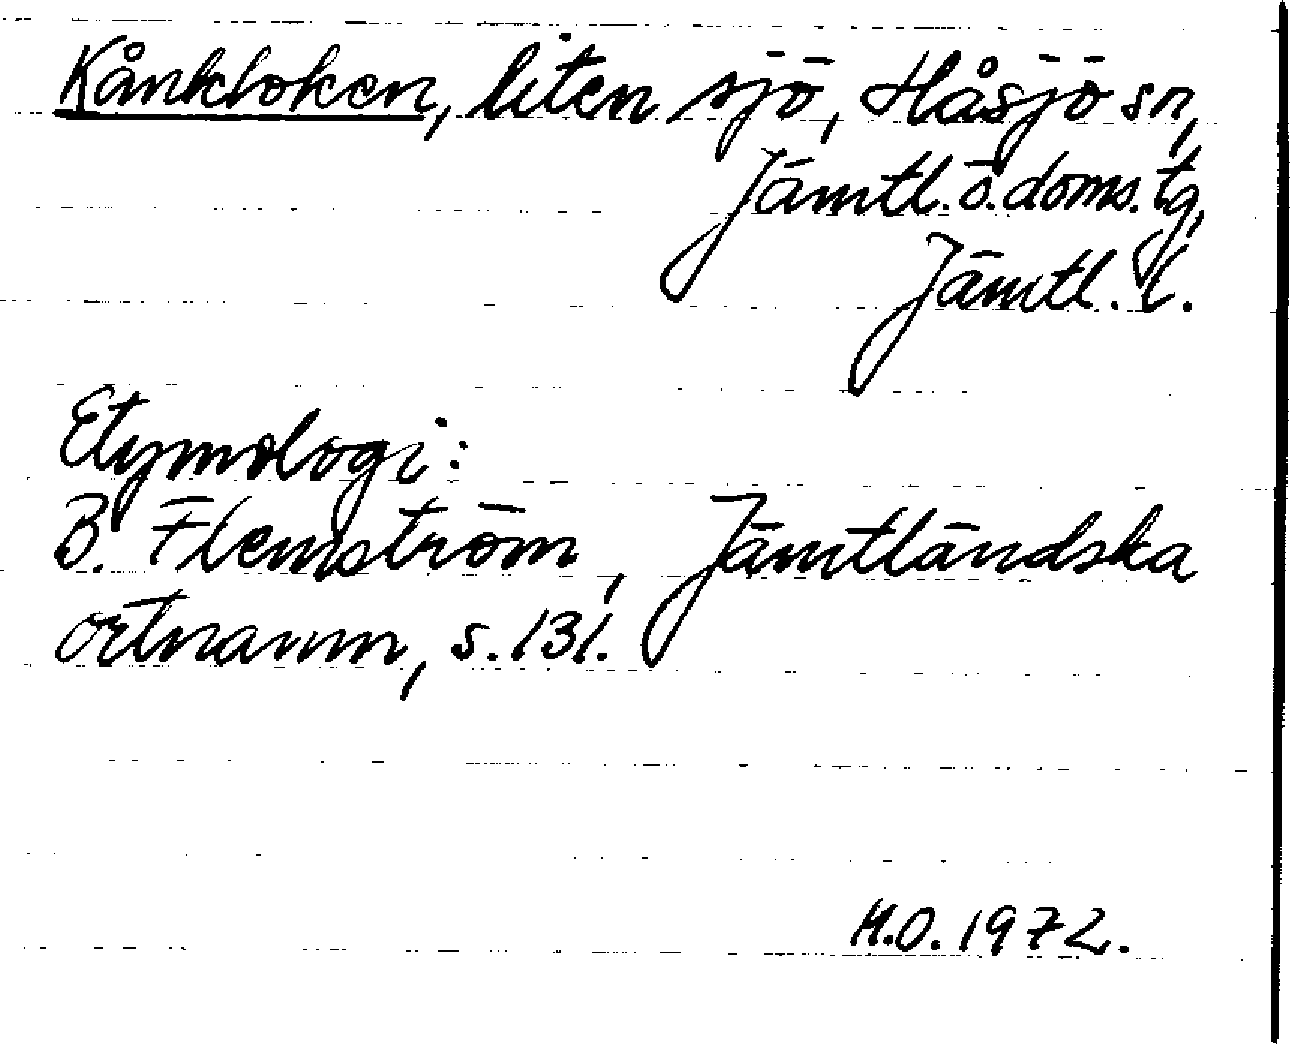 Kånkloken, liten sjö, Håsjö sn,
Jämtl. ö. doms. tg,
Jämtl. l.
Etymologi:
B. Flemström, Jämtländska
ortnamn, s. 131.
H.O. 1972.